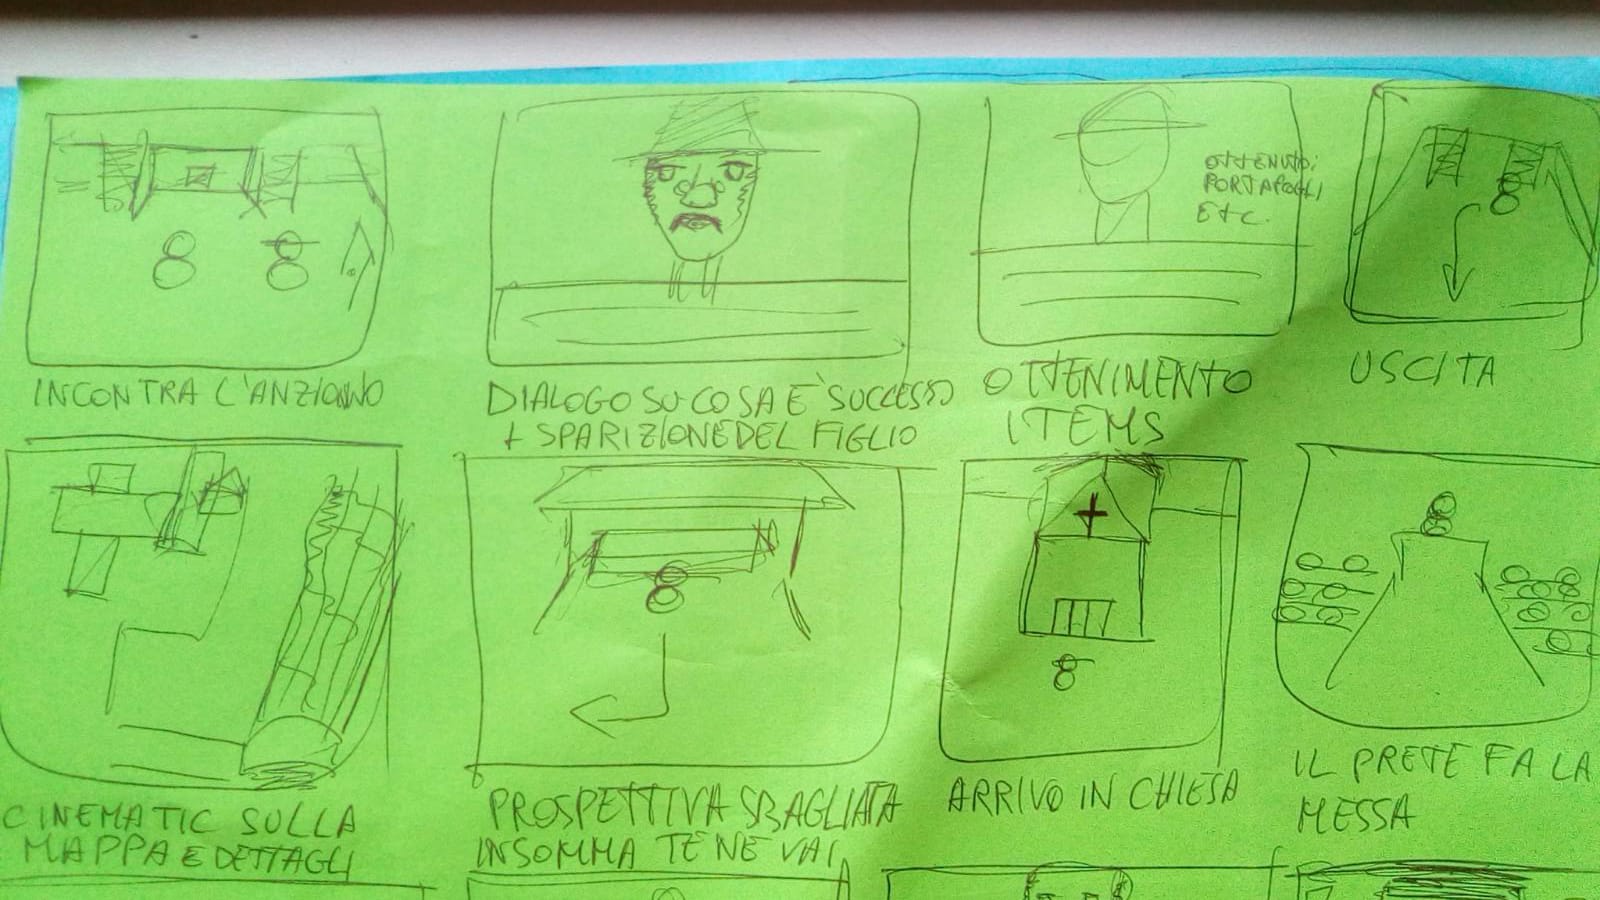 INCONTRA L'ANZIONNO
DIALOGO SU COSA È SUCCESSO
+ SPARIZIONE DEL FIGLIO
OTTENUTO:
PORTAFOGLI
Etc.
OTTENIMENTO
ITEMS
USCITA
CINEMATIC SULLA
MAPPA E DETTAGLI
PROSPETTIVA SBAGLIATA
INSOMMA TE NE VAI
ARRIVO IN CHIESA
IL PRETE FA LA
MESSA